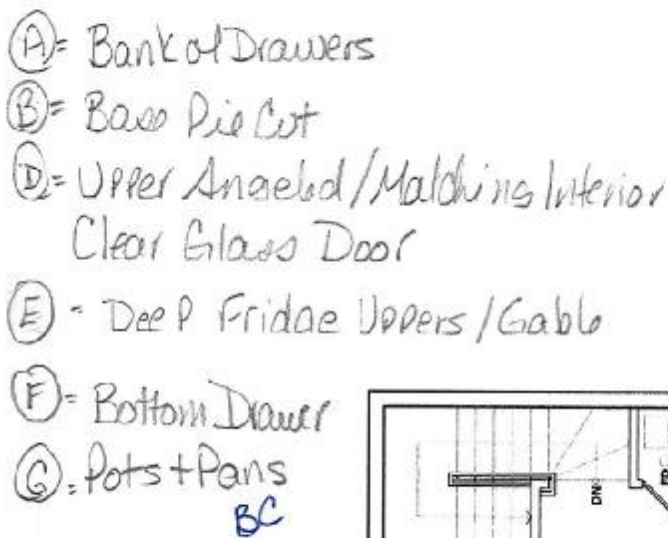 A = Bank of Drawers
B = Base Pie Cut
D = Upper Angeled / Matching Interior
Clear Glass Door
E - Deep Fridge Uppers / Gable
F = Bottom Drawer
G = Pots + Pans
BC
DN